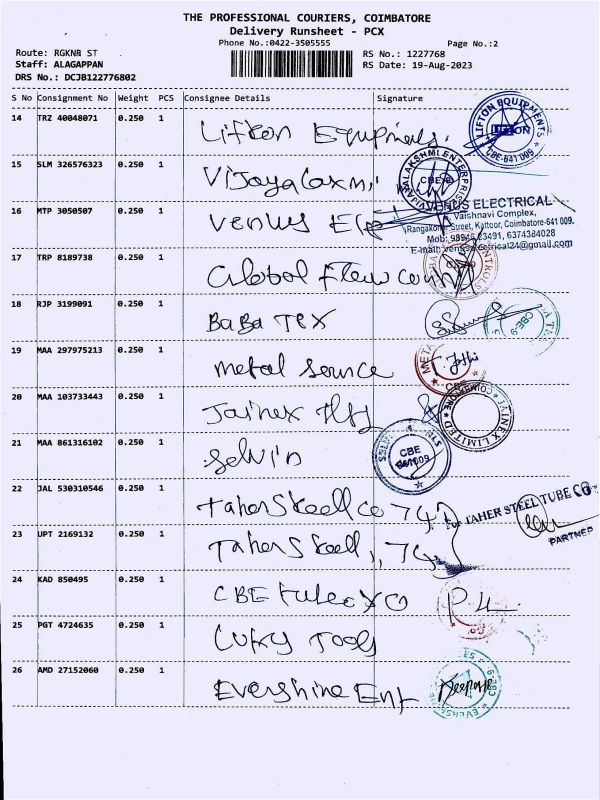 THE PROFESSIONAL COURIERS, COIMBATORE
Delivery Runsheet - PCX
Phone No.:0422-3505555 Page No.:2
Route: RGKNB ST RS No.: 1227768
Staff: ALAGAPPAN RS Date: 19-Aug-2023
DRS No.: DCJB122776802
S No Consignment No Weight PCS Consignee Details Signature
14 TRZ 40048071 0.250 1 Lifton Equipments. LIFTON EQUIPMENTS LIFTON CBE-641 009
15 SLM 326576323 0.250 1 Vijayalaxmi VIJAYALAKSHMI ENTERPRISES CBE-9
16 MTP 3050507 0.250 1 Venus Ele VENUS ELECTRICAL
Vaishnavi Complex,
Rangakonar Street, Kattoor, Coimbatore-641 009.
Mob: 98946 23491, 6374384028
E-mail: venuselectrical24@gmail.com
17 TRP 8189738 0.250 1 Global flow control
18 RJP 3199091 0.250 1 BaBa Tex CBE-9
19 MAA 297975213 0.250 1 metal source META CBE
20 MAA 103733443 0.250 1 Jainex JAINEX LIMITED COIMBATORE
21 MAA 861316102 0.250 1 Selvin CBE 641009
22 JAL 530310546 0.250 1 Taher Steell co 74 For TAHER STEEL TUBE CO
PARTNER
23 UPT 2169132 0.250 1 Taher Steell, 74
24 KAD 850495 0.250 1 CBE
25 PGT 4724635 0.250 1 Lucky Tools
26 AMD 27152060 0.250 1 Evershine Ent EVERSHINE CBE-9